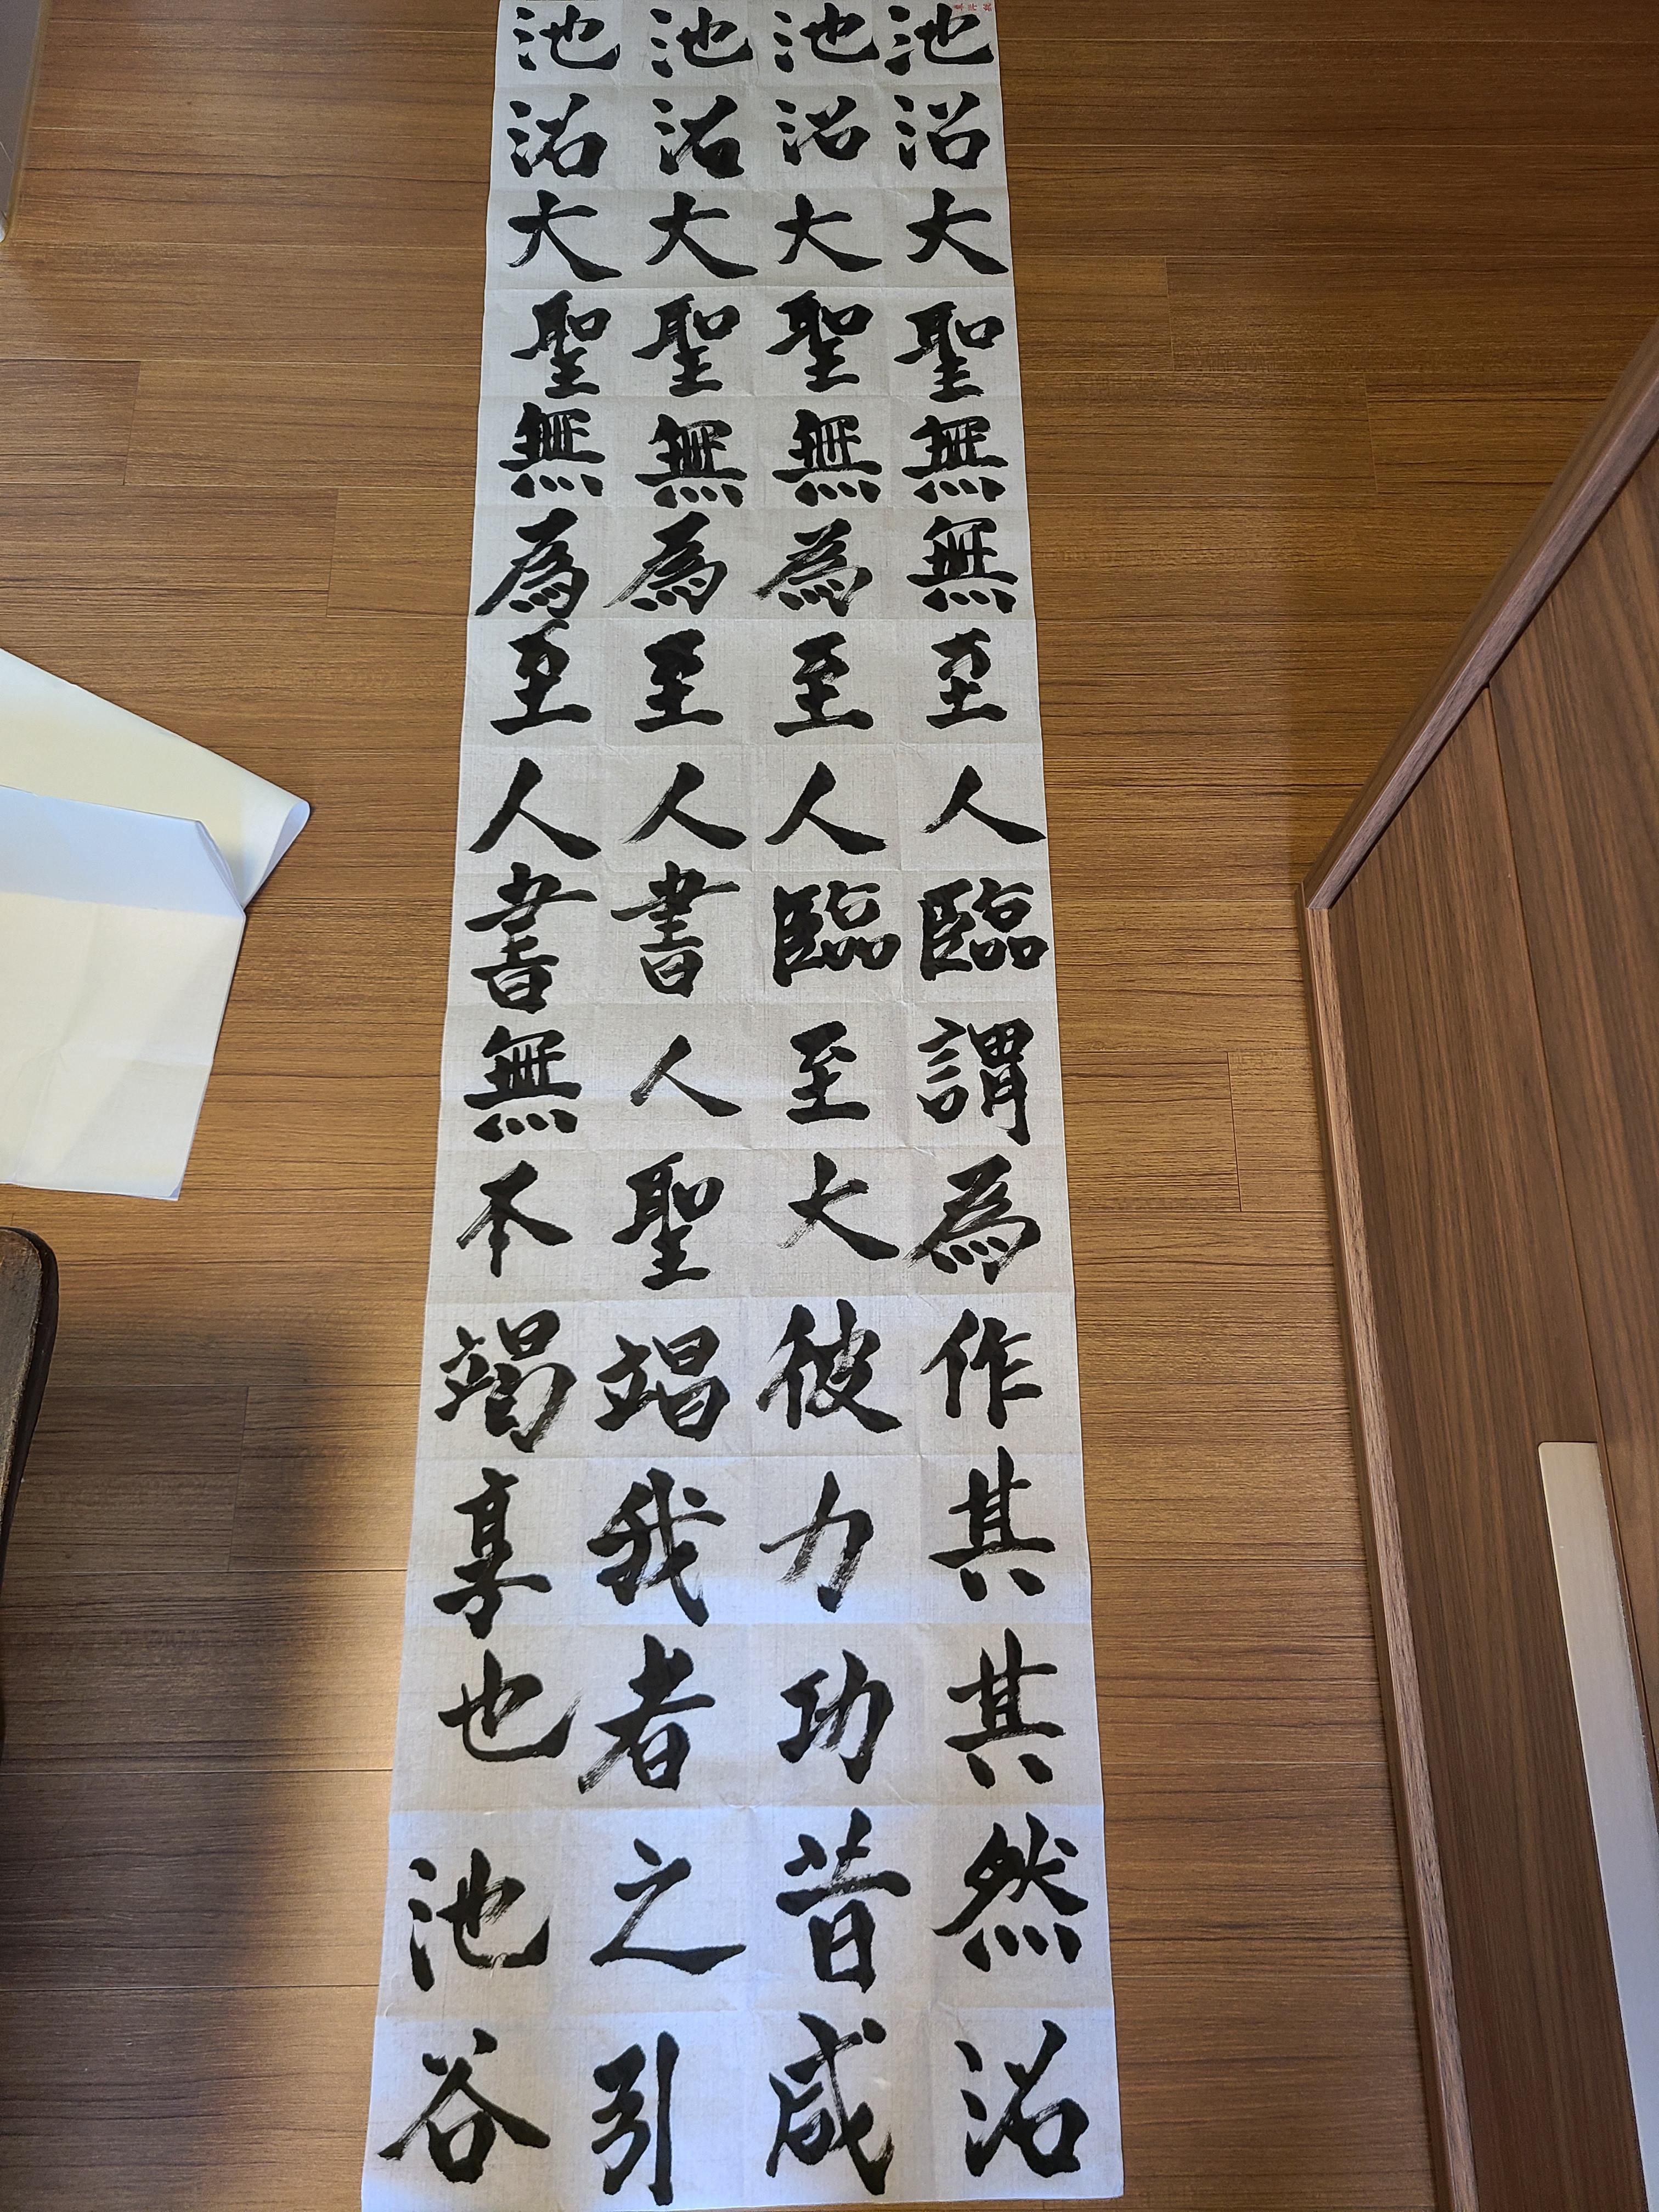 池沿大聖無無至人臨謂為作其其然沿
池沿大聖無為至人臨至大彼力功昔咸
池沿大聖無為至人書人聖竭我者之引
池沿大聖無為至人書無不竭享也池谷